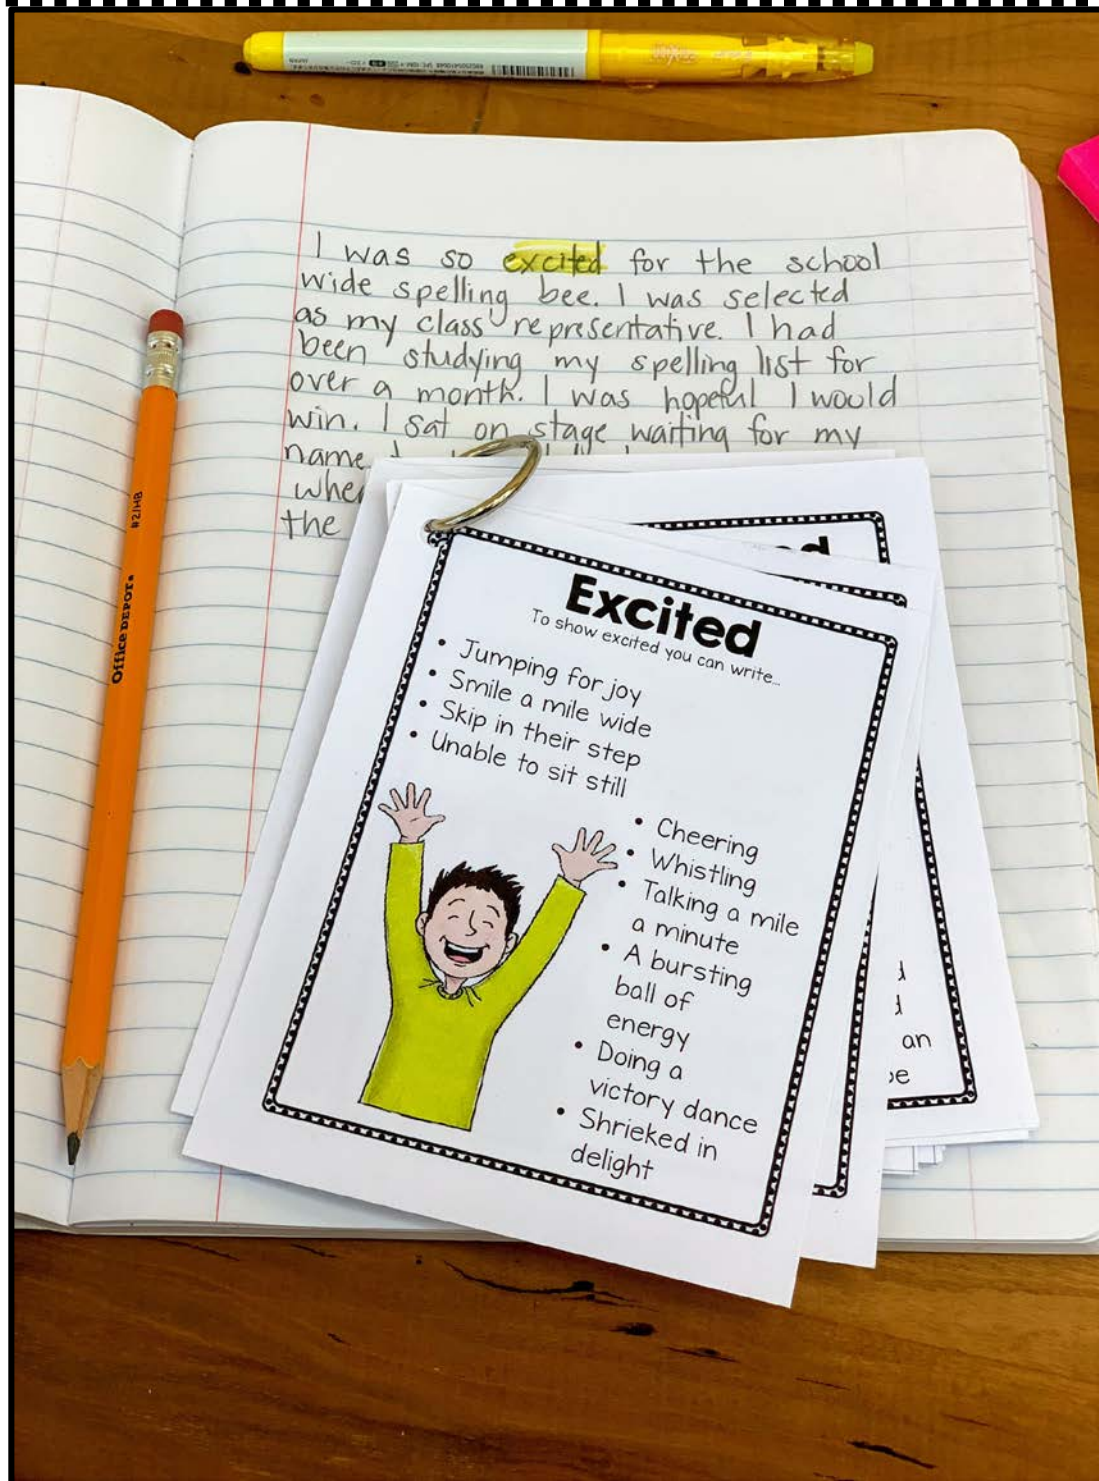 I was so excited for the school
wide spelling bee. I was selected
as my class representative. I had
been studying my spelling list for
over a month. I was hopeful I would
win. I sat on stage waiting for my
name
the
#2/HB
Office DEPOT
Excited
To show excited you can write...
• Jumping for joy
• Smile a mile wide
• Skip in their step
• Unable to sit still
• Cheering
• Whistling
• Talking a mile
a minute
• A bursting
ball of
energy
• Doing a
victory dance
• Shrieked in
delight
an